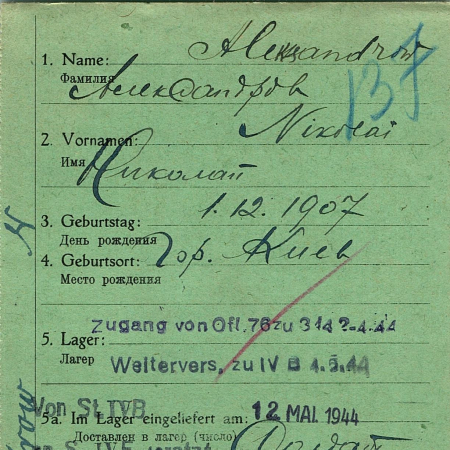 Aleksandrow
1. Name:
Фамилия
Александров
137
Nikolai
2. Vornamen:
Имя
Николай
3. Geburtstag: 1.12.1907
День рождения
4. Geburtsort: гор. Киев
Место рождения
Zugang von Ofl. 76 zu
5. Lager:
Лагер
Weitervers. zu IV B 4.5.44
Von St IVB
5a. Im Lager eingeliefert am: 12 MAI 1944
Доставлен в лагер (число)